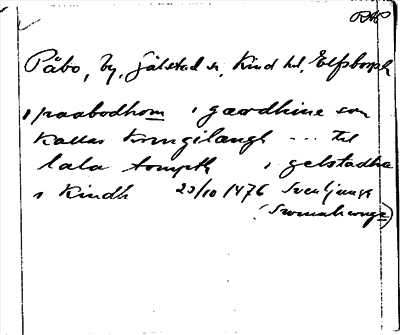 RAP
Påbo, by, Gälstad sn, Kind hd, Elfsborgs l
i paabodhom i gærdhine som
kallas kringilængh --- til
lala tompth i gelstadha
i Kindh 23/10 1476 Svenljunga
(Swinahwnge)